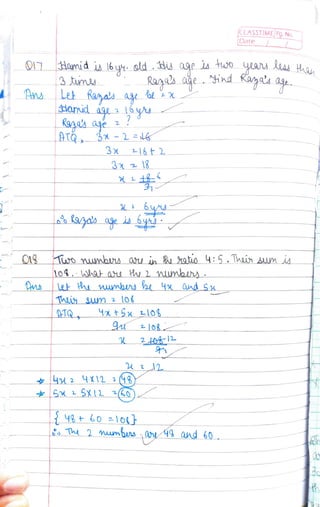 CLASSTIME Pg. No.
Date / /
Q17 Hamid is 16 yr. old. His age is two years less than
3 times Raza's age. Find Raza's age.
Ans Let Raza's age be = x
Hamid age = 16 yrs
Raza's age = ?
ATQ, 3x - 2 = 16
3x = 16 + 2
3x = 18
x = 18 6
3 1
x = 6 yrs
∴ Raza's age is 6 yrs.
Q18 Two numbers are in the ratio 4:5. Their sum is
108. What are the 2 numbers.
Ans Let the numbers be 4x and 5x
Their sum = 108
ATQ, 4x + 5x = 108
9x = 108
x = 108 12
9 1
x = 12
4x = 4x12 = 48
5x = 5x12 = 60
{ 48 + 60 = 108 }
∴ The 2 numbers are 48 and 60.